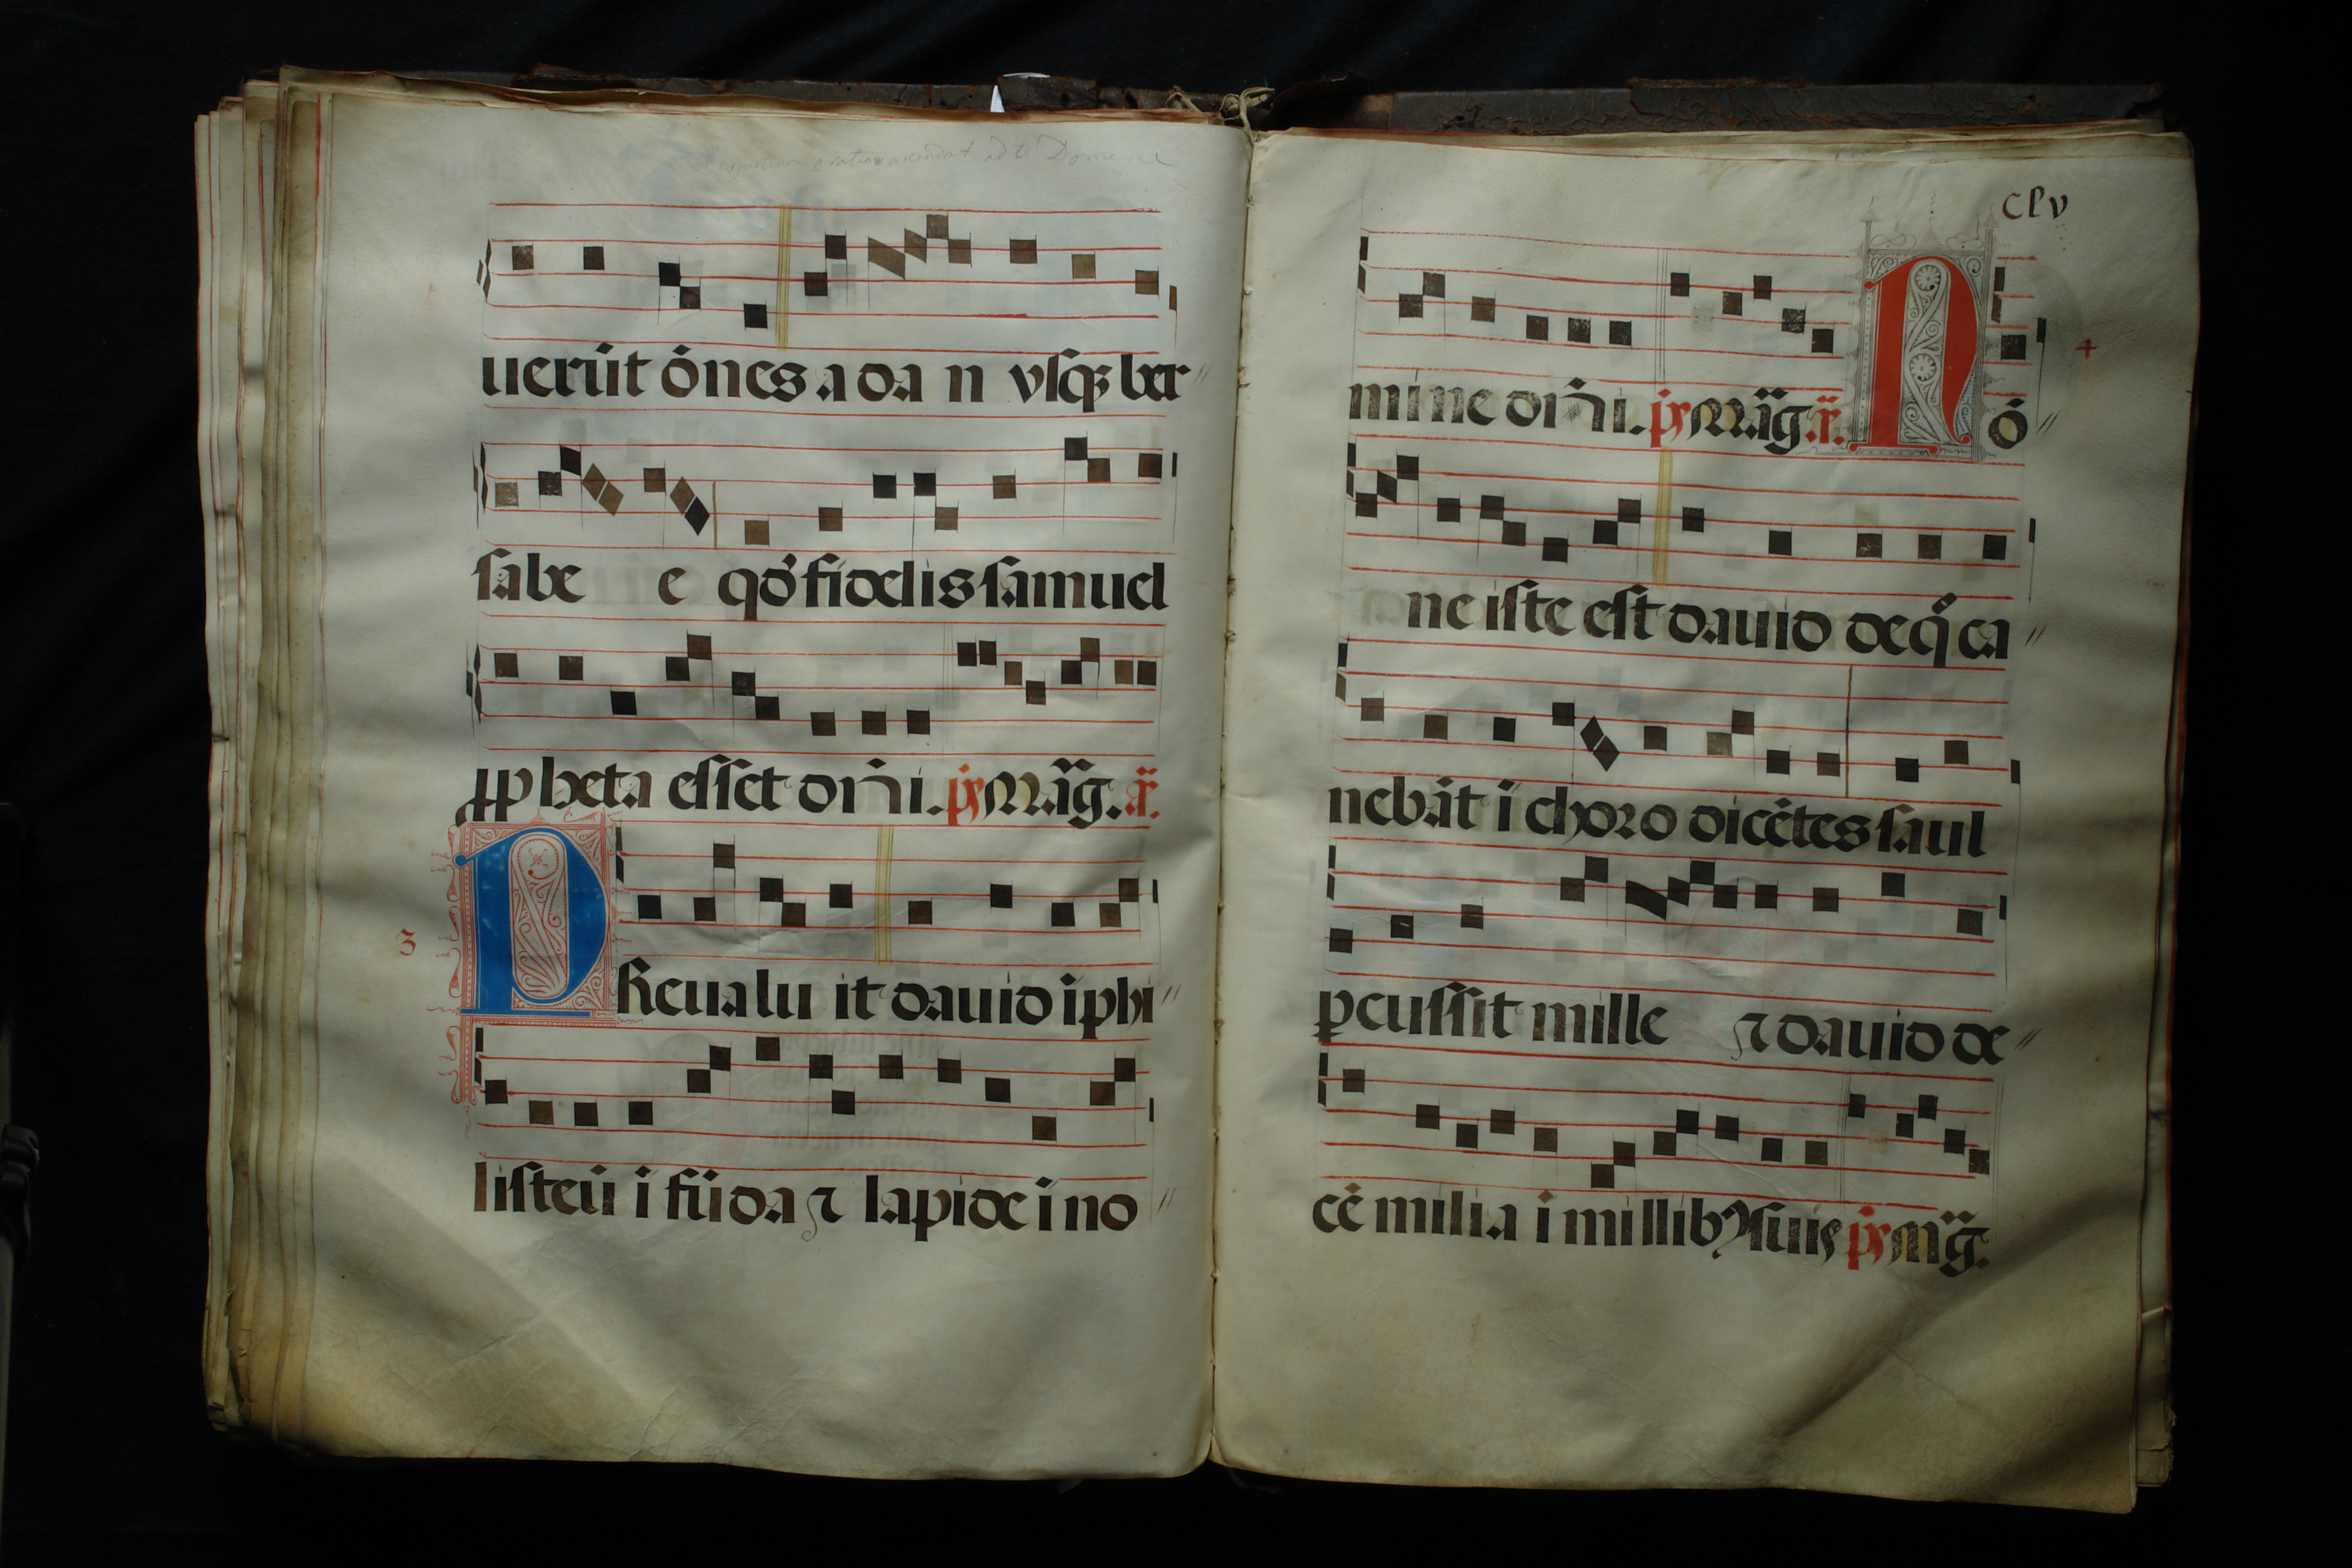 oratio ascendat ad te Domine
uerūt oṁes a da n vsq; ber
sabe e qđ fidelis samuel
ꝓpheta esset dom̄i. ps Mag. a.
3
PReualu it dauid i phi
listeū i fūda ⁊ lapide i no
CLv
mine dom̄i. ps Mag. a. No
4
ne iste est dauid de q̊ ca
nebāt i choro dicētes saul
ꝑcussit mille ⁊ dauid de
cē milia i millibꝰ suis ps mag.